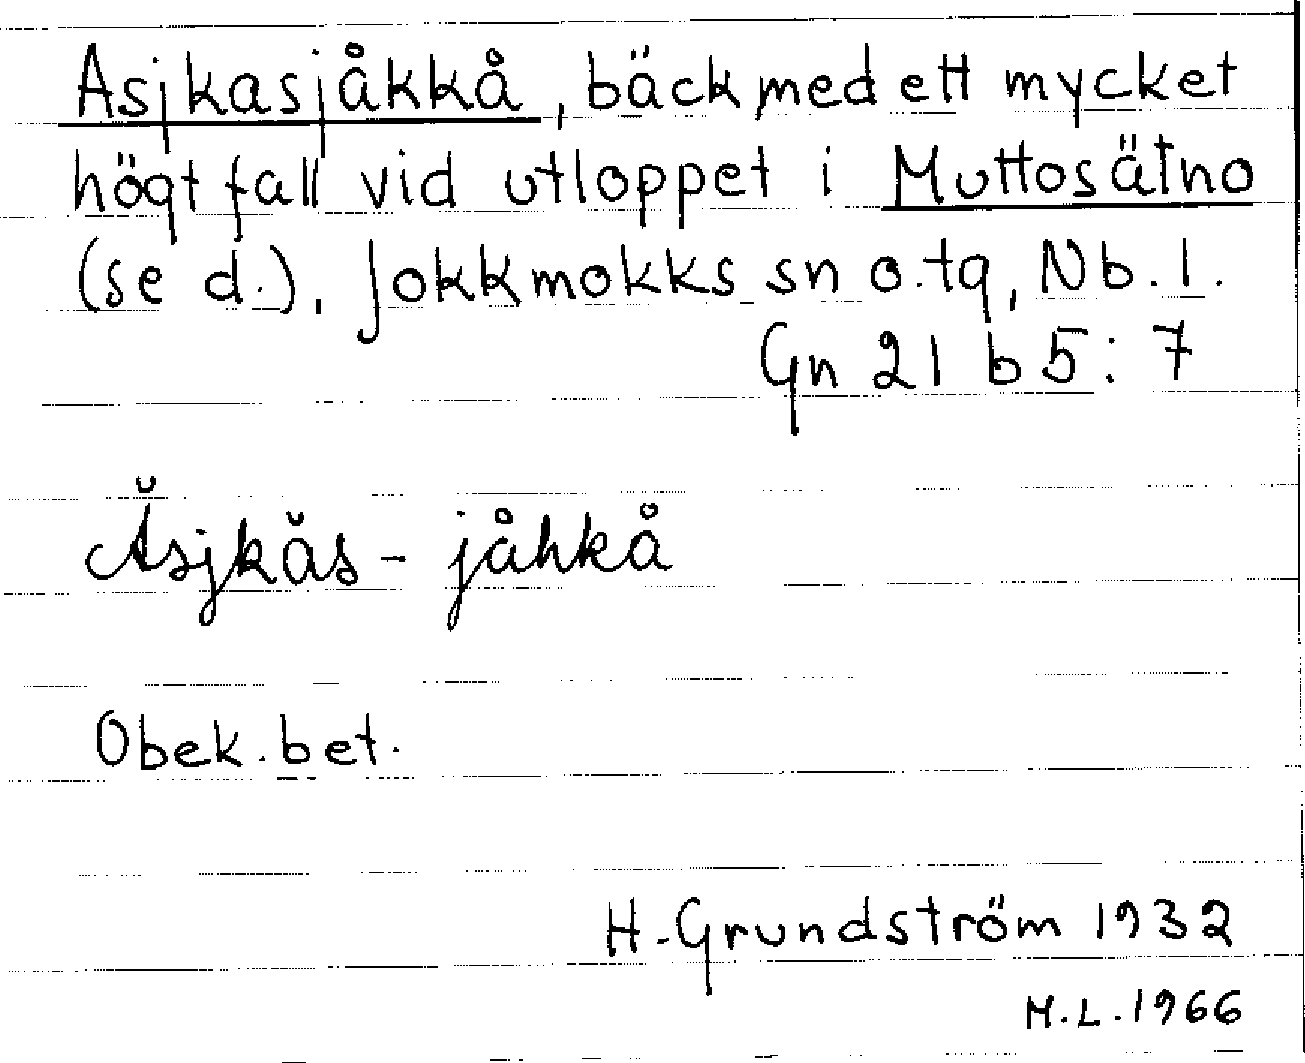 Asjkasjåkkå, bäck med ett mycket
högt fall vid utloppet i Muttosätno
(se d.), Jokkmokks sn o. tg, Nb. l.
Gn 21 b 5: 7
Ǎsjkǎs - jåhkå
Obek. bet.
H. Grundström 1932
M.L. 1966